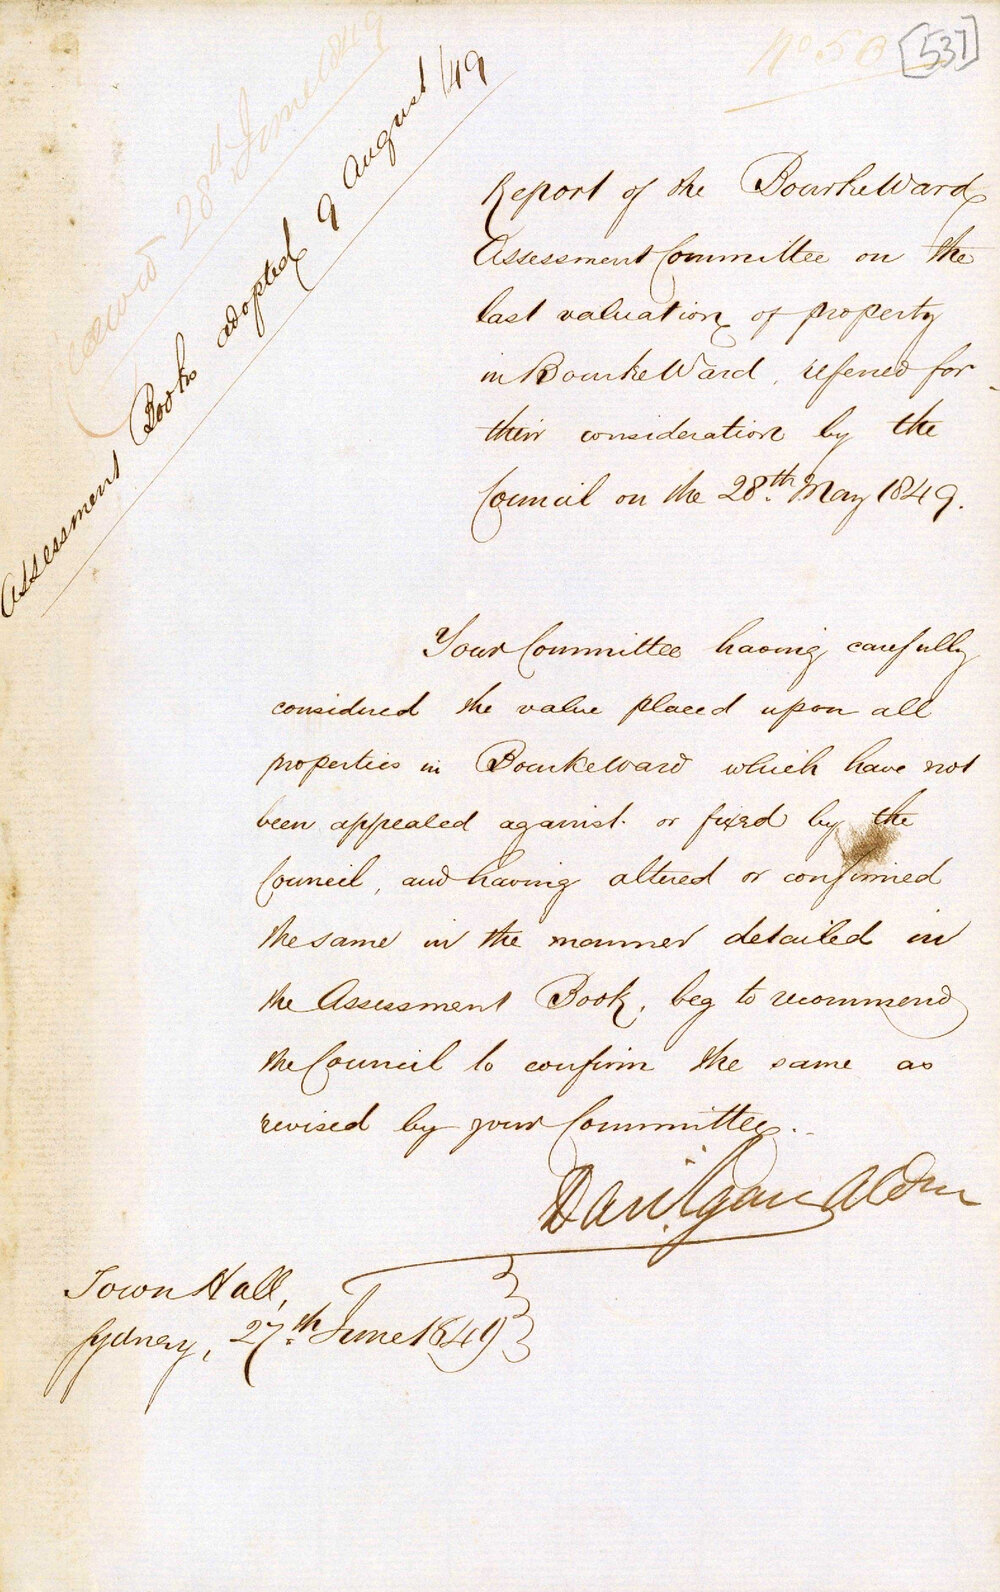 No 50 [537]
28th June 1849
Assessment Book adopted 9 August /49
Report of the Bourke Ward
Assessment Committee on the
last valuation of property
in Bourke Ward, referred for
their consideration by the
Council on the 28th May 1849.
Your Committee having carefully
considered the value placed upon all
properties in Bourke Ward which have not
been appealed against or fixed by the
Council, and having altered or confirmed
the same in the manner detailed in
the Assessment Book, beg to recommend
the Council to confirm the same as
revised by your Committee.
Danl Egan Aldm
Town Hall,
Sydney, 27th June 1849